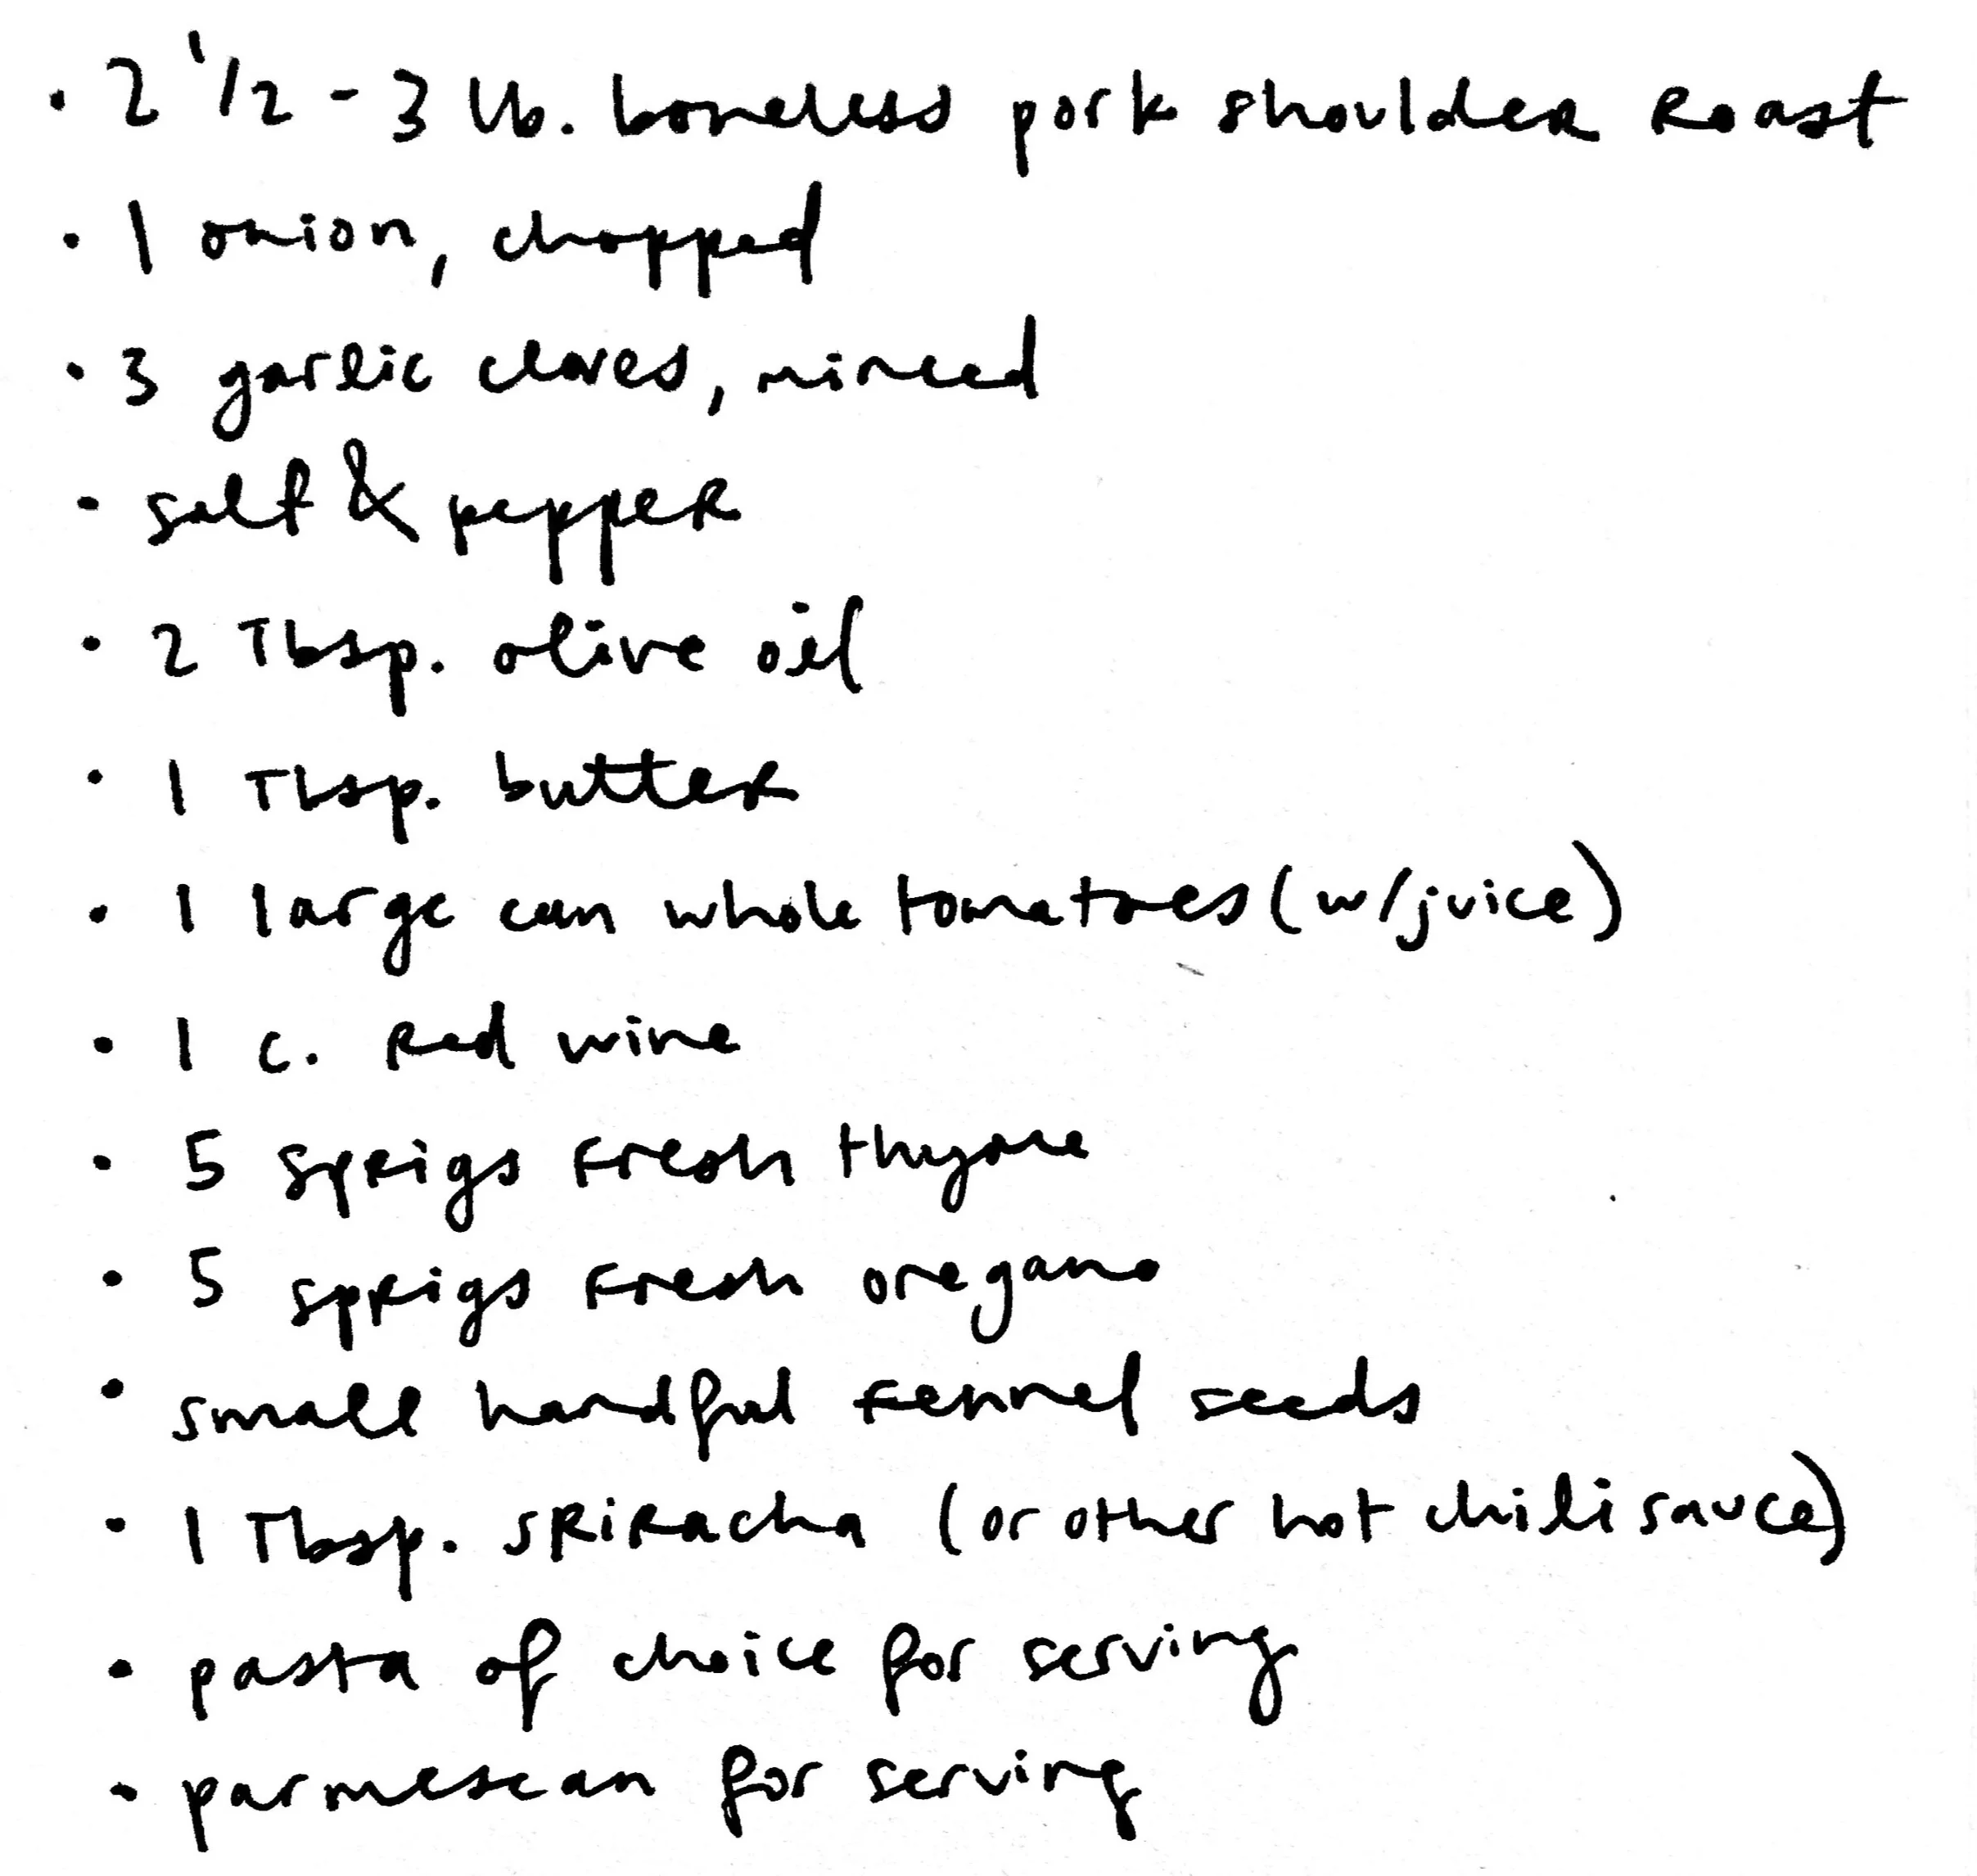 • 2 1/2 - 3 lb. boneless pork shoulder roast
• 1 onion, chopped
• 3 garlic cloves, minced
• salt & pepper
• 2 Tbsp. olive oil
• 1 Tbsp. butter
• 1 large can whole tomatoes (w/juice)
• 1 c. red wine
• 5 sprigs fresh thyme
• 5 sprigs fresh oregano
• small handful fennel seeds
• 1 Tbsp. sriracha (or other hot chili sauce)
• pasta of choice for serving
• parmesean for serving